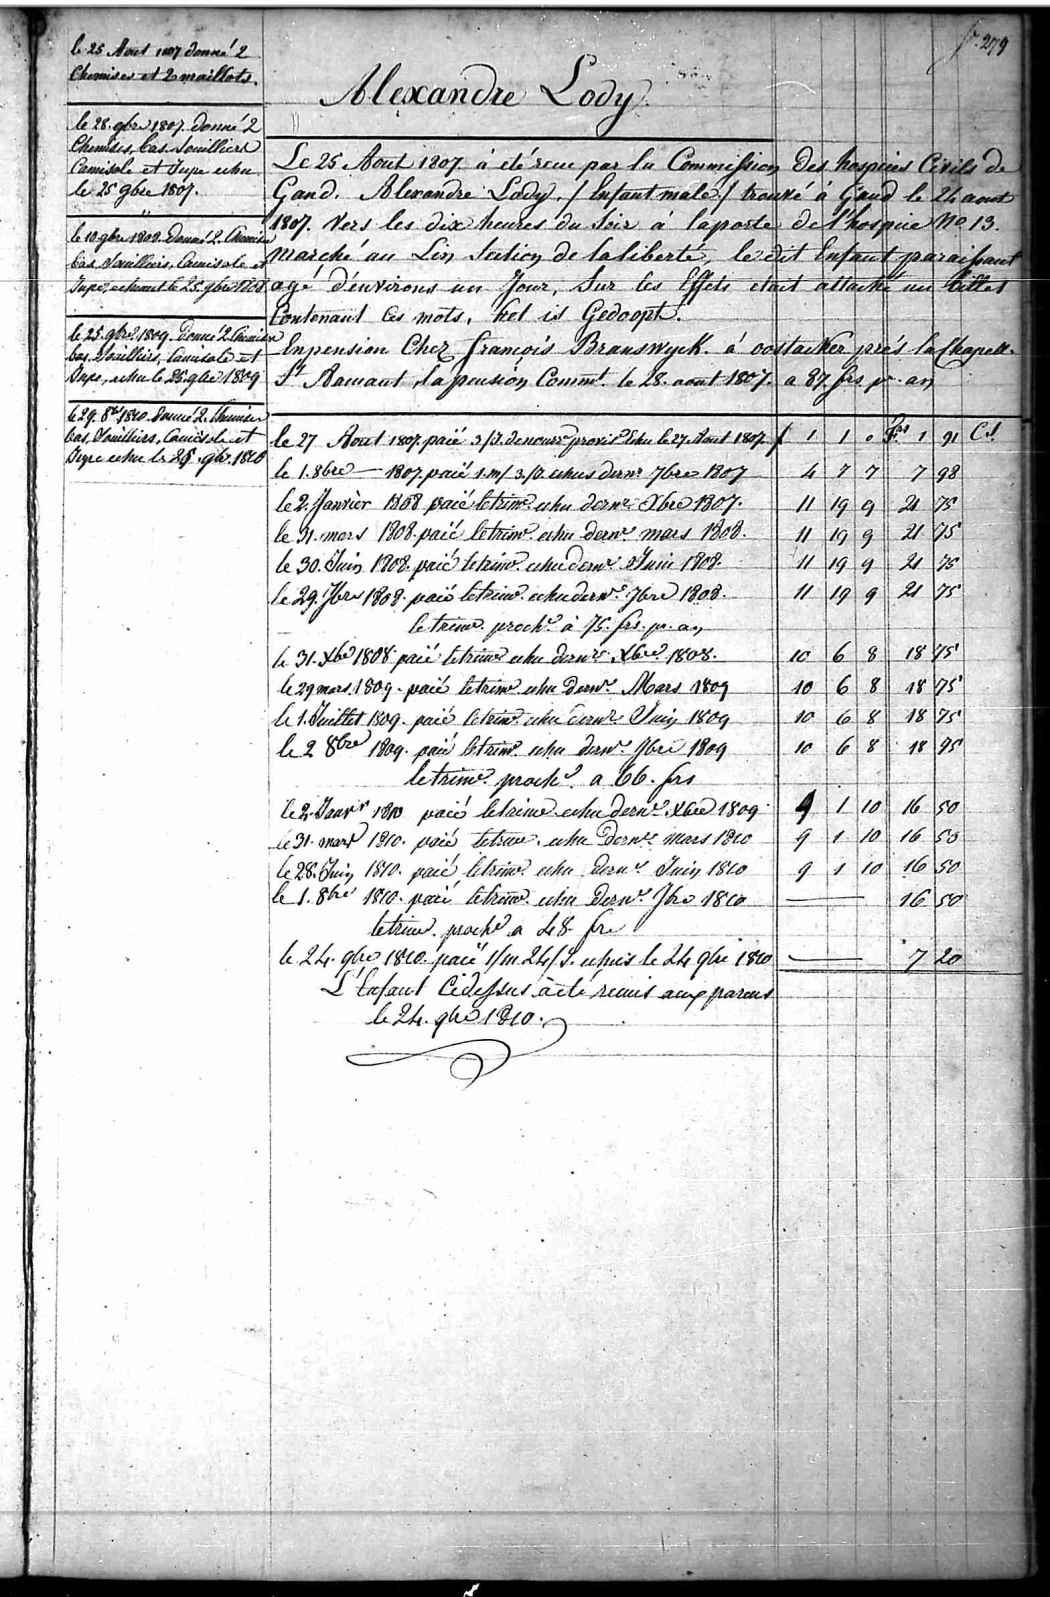 fo. 279
le 25 Aout 1807 donné 2
Chemises et 2 maillots.
le 28. 9bre 1807. donné 2
Chemises, bas. Souilliers
Camisole et Jupe echu
le 25 9bre 1807.
le 10 9bre 1808. Donné 2. Chemise
bas Souilliers, Camisole et
Jupe, echeant le 25. 9bre 1808
le 25. 9bre 1809. Donné 2 Chemises
bas, Souilliers, Camisole et
Jupe, echu le 25. 9bre 1809
le 29. 8bre 1810. donné 2. Chemises
bas, Souilliers, Camisole et
Jupe echu le 25. 9br. 1810
Alexandre Lody
Le 25 Aout 1807 à été recu par la Commission des hospices Civils de
Gand. Alexandre Lody, / Enfant male / trouvé à Gand le 24 aout
1807. Vers les dix heures du Soir à la porte de l'hospice No 13.
Marché au Lin Section de la liberté, le dit Enfant paraissant
agé d'environs un Jour, Sur les Effets etait attaché un billet
Contenant Ces mots, het is Gedoopt.
En pension Chez françois Branswyck. á oostacker prés la Chapell.
St Aamant, la pension Commt. le 28. aout 1807. a 87 frs pr. an
le 27 Aout 1807. paié 3/J. de nourre provisre Echu le 27. Aout 1807 f 1 1 0 Frs 1 91 Cs
le 1. 8bre — 1807. paié 1. m/ 3/J. echus dernr 7bre 1807 4 7 7 7 98
le 2. Janvier 1808 paié le trime. echu dernr Xbre 1807. 11 19 9 21 75
le 31. mars 1808. paié le trime. echu dernr mars 1808. 11 19 9 21 75
le 30. Juin 1808. paié le trime. echu dernr. Juin 1808. 11 19 9 21 75
le 29. 7bre 1808. paié le trime. echu dernr. 7bre 1808. 11 19 9 21 75
le trime. proche à 75. frs. pr. an
le 31. Xbre 1808. paié le trime echu dernr. Xbre. 1808. 10 6 8 18 75
le 29 mars. 1809. paié le trime echu Dernr. Mars 1809 10 6 8 18 75
le 1. Juillet 1809. paié le trime. echu dernr Juin 1809 10 6 8 18 75
le 2 8bre 1809. paié le trime. echu dernr. 7bre 1809 10 6 8 18 75
le trime. proche. a 66. frs
le 2. Janvr 1810 paié le trime echu dernr. Xbre 1809. 9 1 10 16 50
le 31. mars 1810. paié le trime. echu Dernr. mars 1810 9 1 10 16 50
le 28. Juin 1810. paié le trime. echu dernr. Juin 1810 9 1 10 16 50
le 1. 8bre 1810. paié le trime. echu Dernr. 7bre 1810 — 16 50
le trime. proche a 48. frs
le 24. 9bre 1810. paié 1/m 24/J. echus le 24 9bre 1810 — 7 20
L'Enfant Cidessus à été remis aux parens
le 24. 9bre 1810.